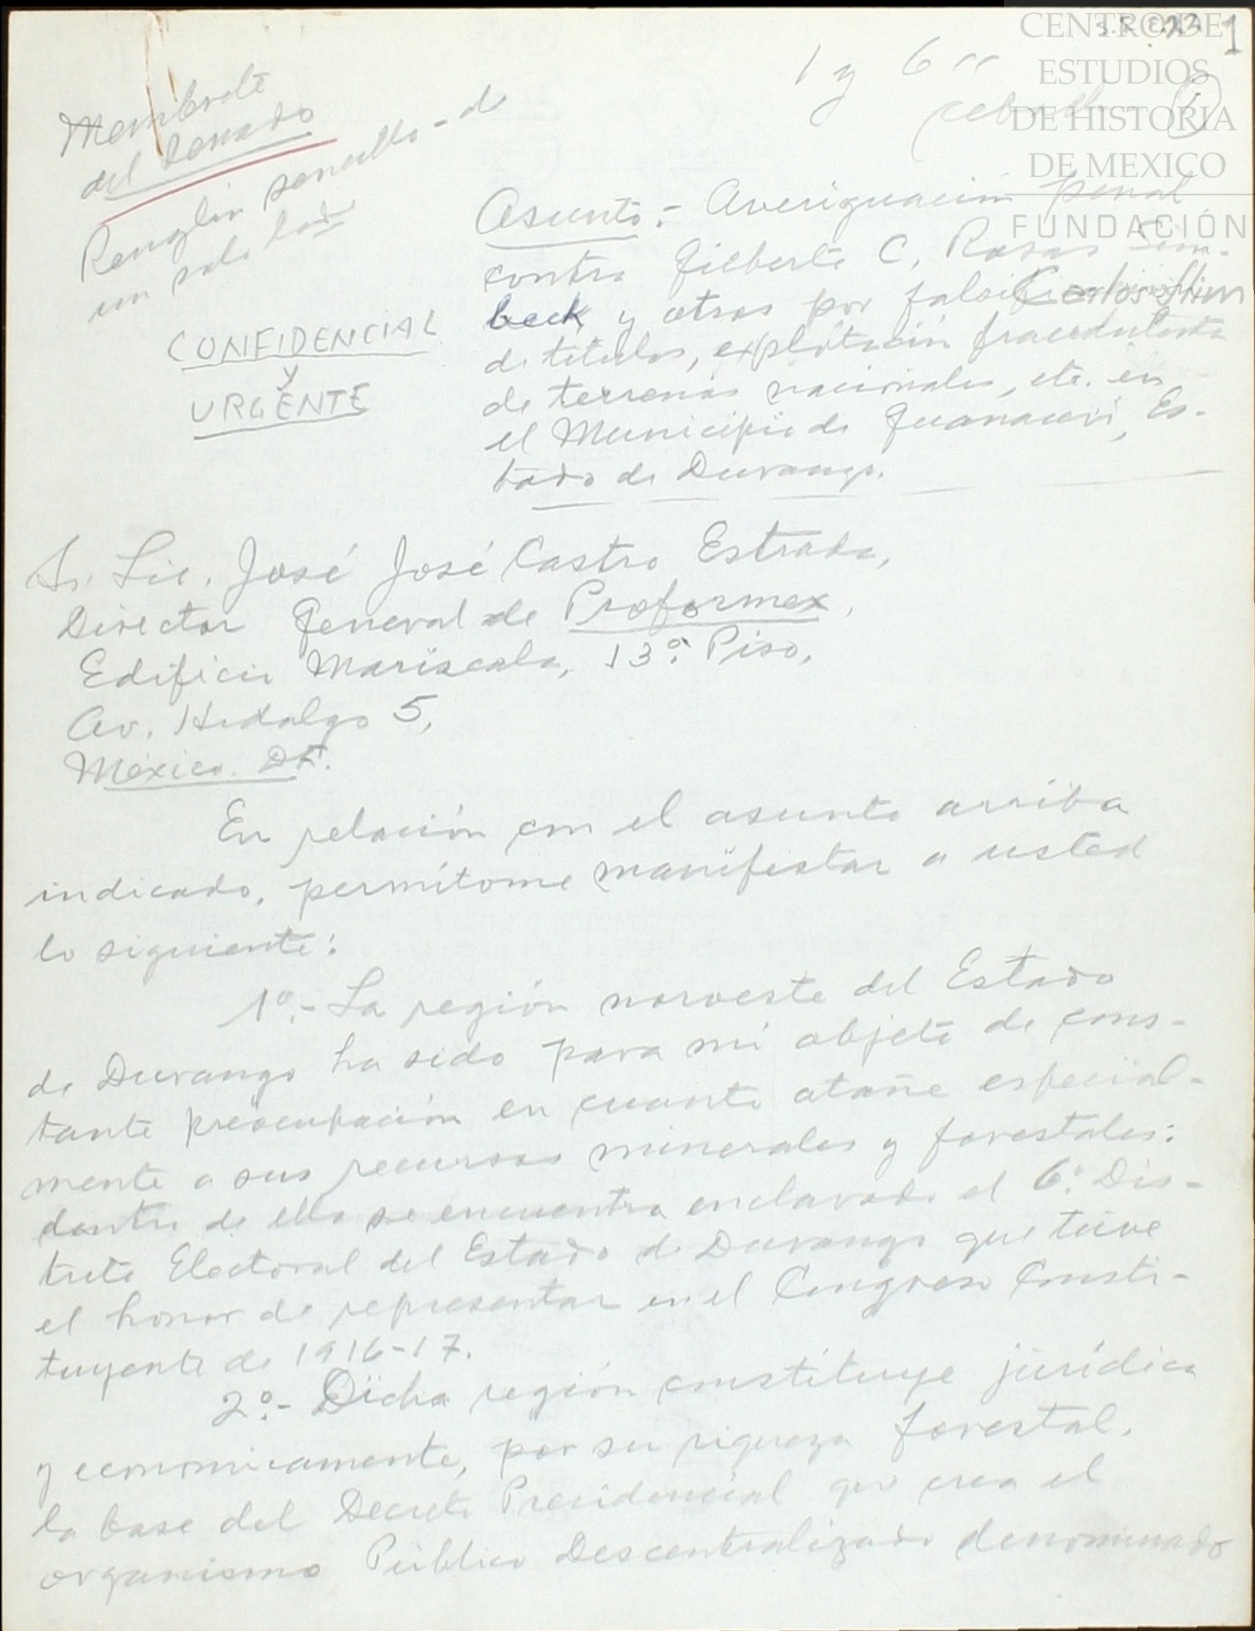 1
CENTRO DE
ESTUDIOS
DE HISTORIA
DE MEXICO
FUNDACIÓN
Carlos Slim
1 y 6
Membrete
del Senado
Renglón sencillo - de
un solo lado
CONFIDENCIAL
Y
URGENTE
Asunto.- Averiguación penal
contra Gilberto C. Rosas Sim-
beck y otros por
de títulos, explotación fraudulenta
de terrenos nacionales, etc. en
el Municipio de Guanaceví, Es-
tado de Durango.
Sr. Lic. José José Castro Estrada,
Director General de Proformex,
Edificio Mariscala, 13º Piso,
Av. Hidalgo 5,
México. D.F.
En relación con el asunto arriba
indicado, permítome manifestar a usted
lo siguiente:
1º.- La región noroeste del Estado
de Durango ha sido para mí objeto de cons-
tante preocupación en cuanto atañe especial-
mente a sus recursos minerales y forestales:
dentro de ella se encuentra enclavado el 6º. Dis-
trito Electoral del Estado de Durango que tuve
el honor de representar en el Congreso Consti-
tuyente de 1916-17.
2º.- Dicha región constituye jurídica
y económicamente, por su riqueza forestal,
la base del Decreto Presidencial que crea el
organismo Público Descentralizado denominado